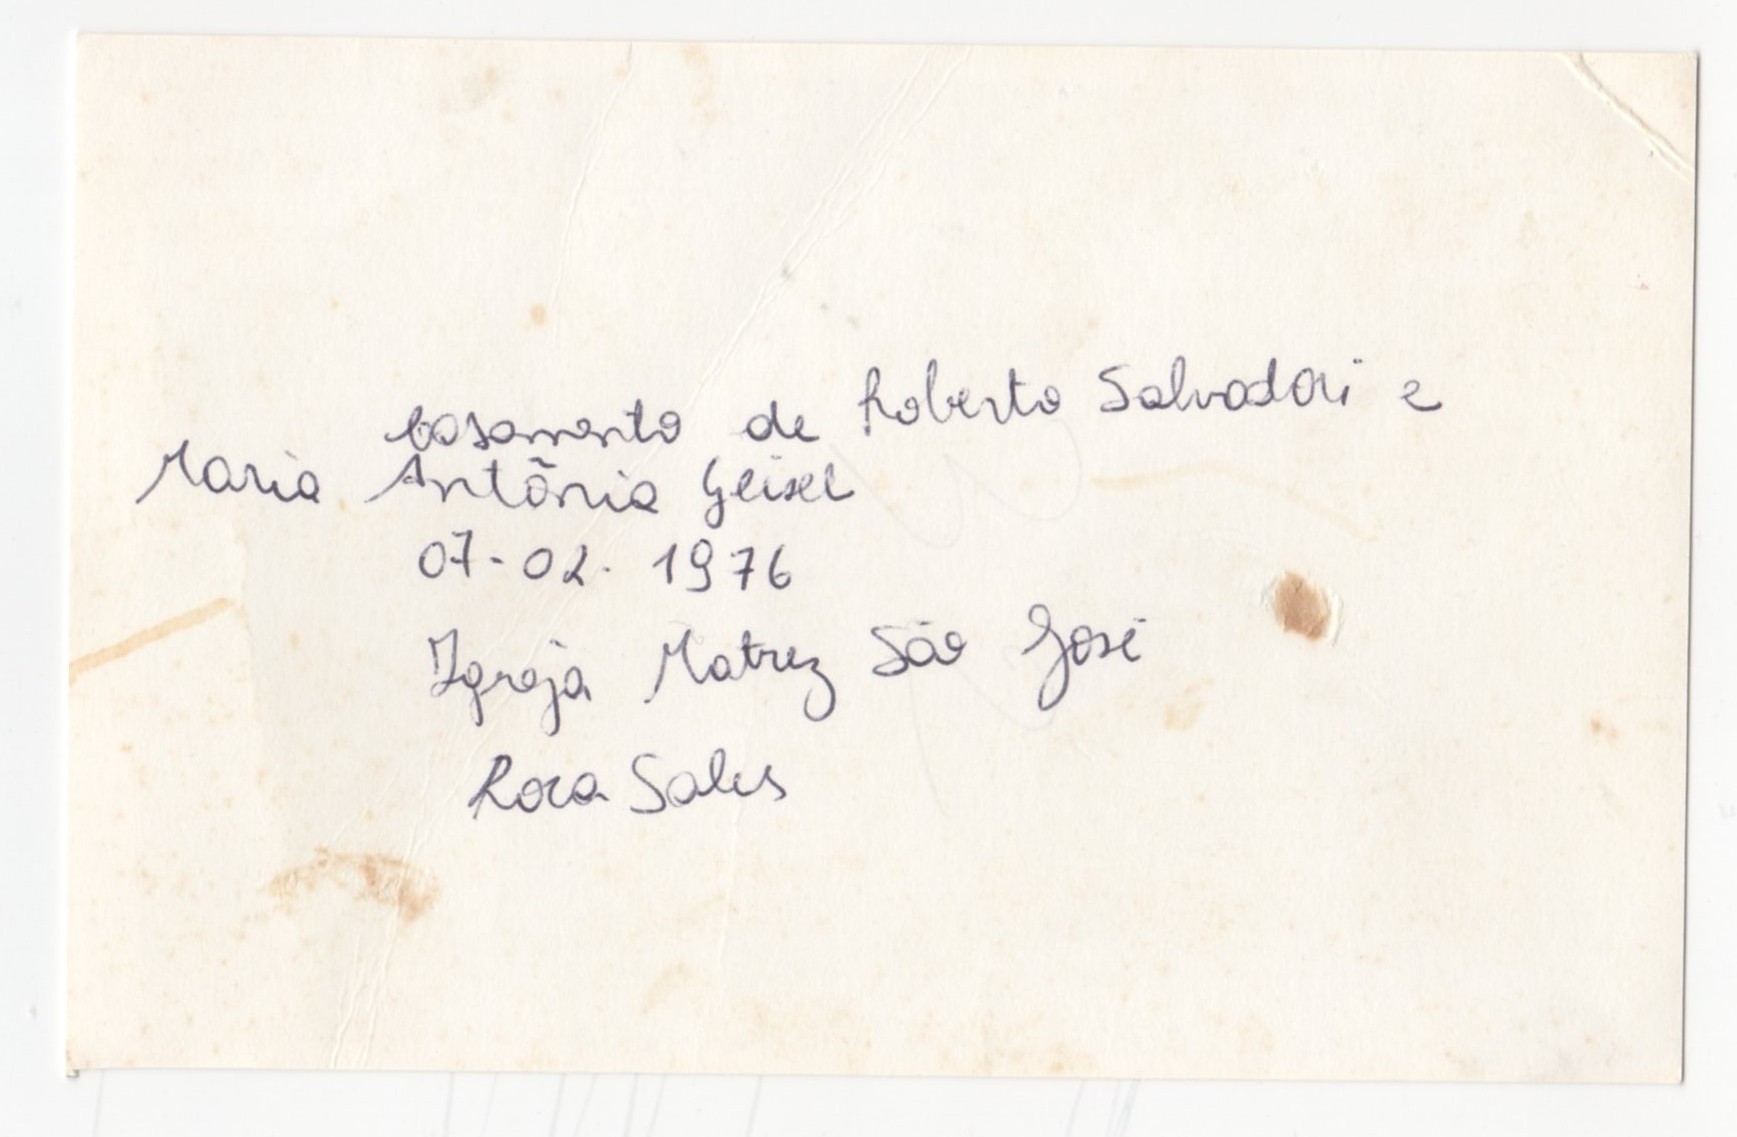 Casamento de Roberto Salvadori e
Maria Antônia Geisel
07-02-1976
Igreja Matriz São José
Roca Sales